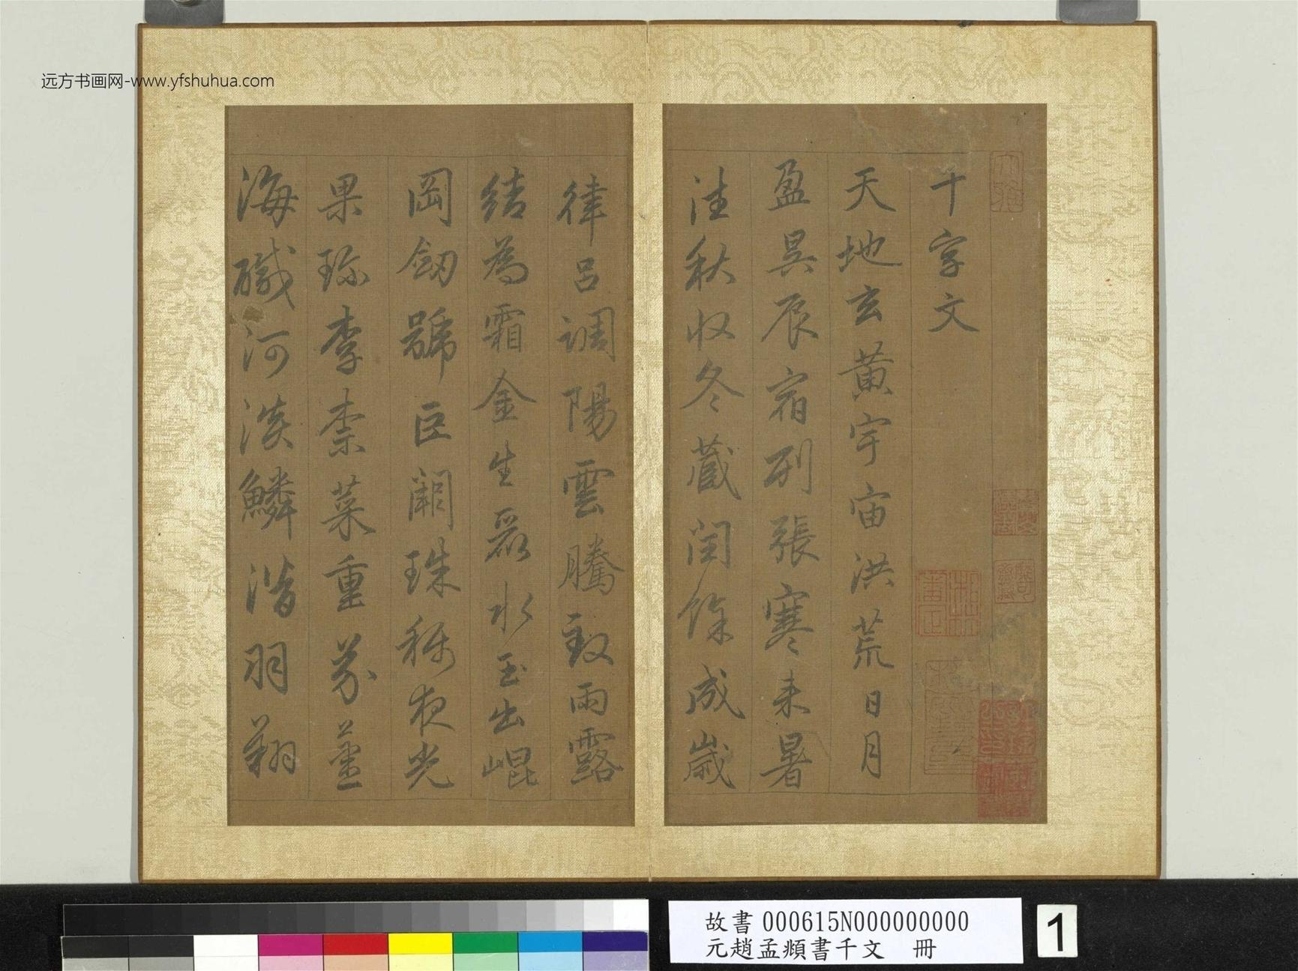 远方书画网-www.yfshuhua.com
千字文
天地玄黄宇宙洪荒日月
盈昃辰宿列張寒来暑
往秋收冬藏閏餘成歲
律吕调陽雲騰致雨露
結為霜金生麗水玉出崐
岡劒號巨闕珠稱夜光
果珎李柰菜重芥薑
海醎河淡鱗潛羽翔
故書 000615N000000000
元趙孟頫書千文 冊
1